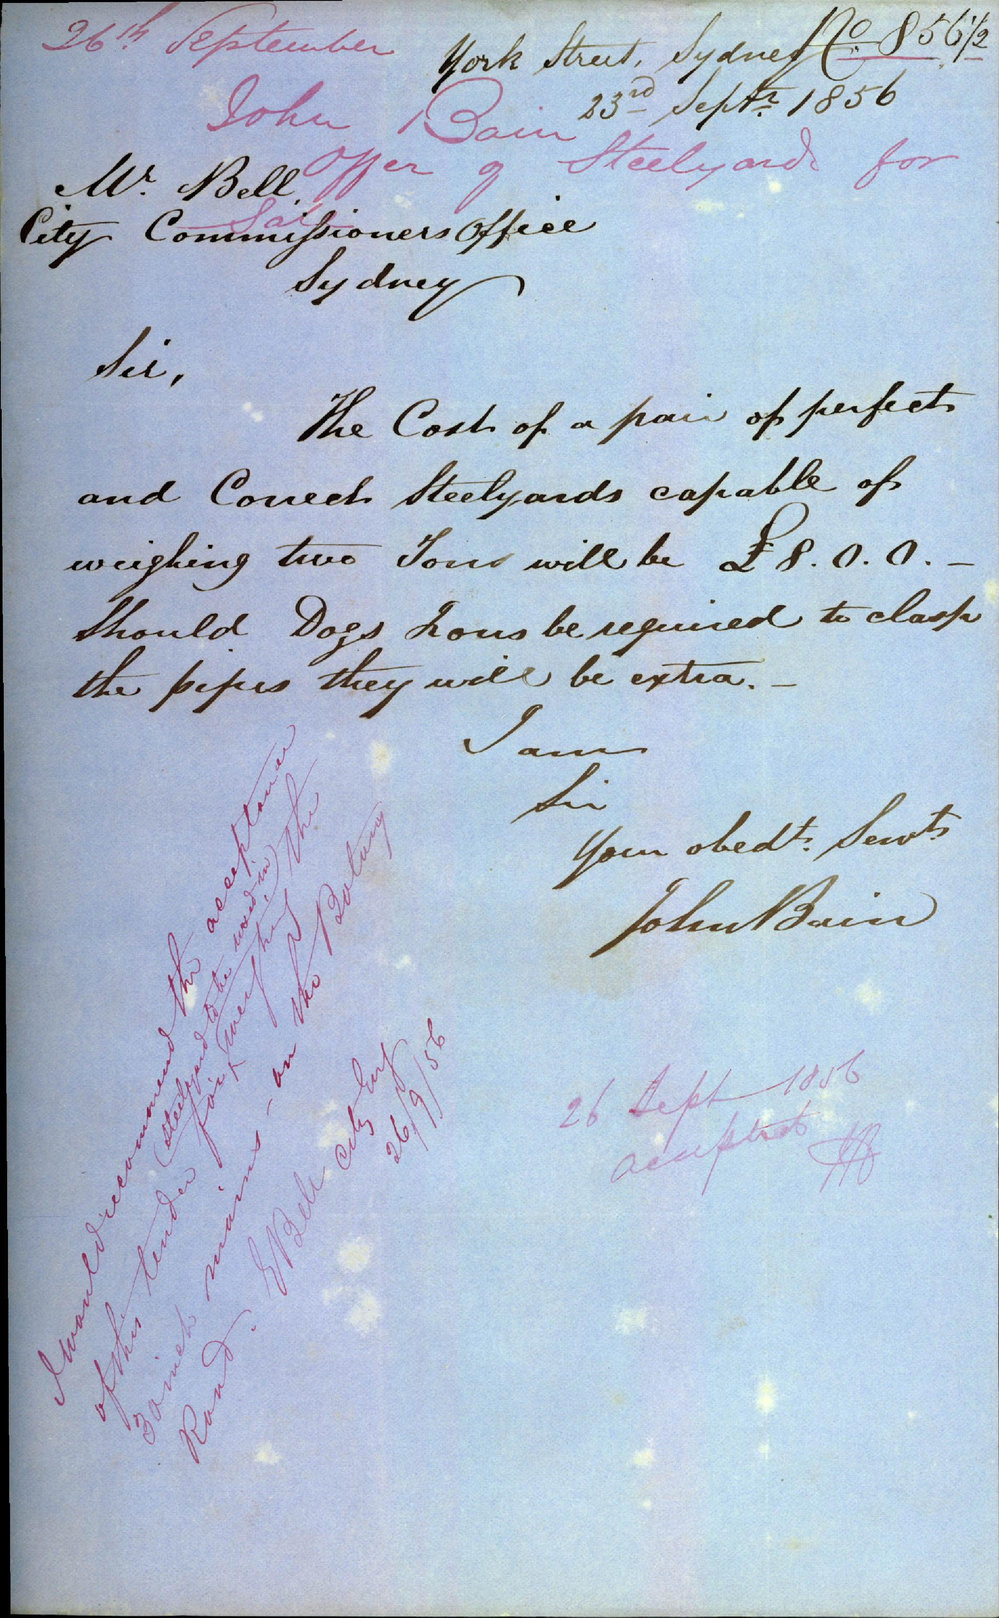 26th September
York Street, Sydney No. 856 1/2
23rd Septr. 1856
John Bain
Offer of Steelyards for
Sale
Mr. Bell,
City Commissioners Office
Sydney
Sir,
The Cost of a pair of perfect
and Correct Steelyards capable of
weighing two Tons will be £8.0.0. —
Should Dogs Irons be required to clasp
the pipes they will be extra. —
I am
Sir
Your obedt. Servt.
John Bain
I would recommend the acceptance
of this tender for (steelyard to be used in) weighing the
30 inch mains - on the Botany
Road.
E Bell City Eng
26/9/56
26 Sept 1856
accepted